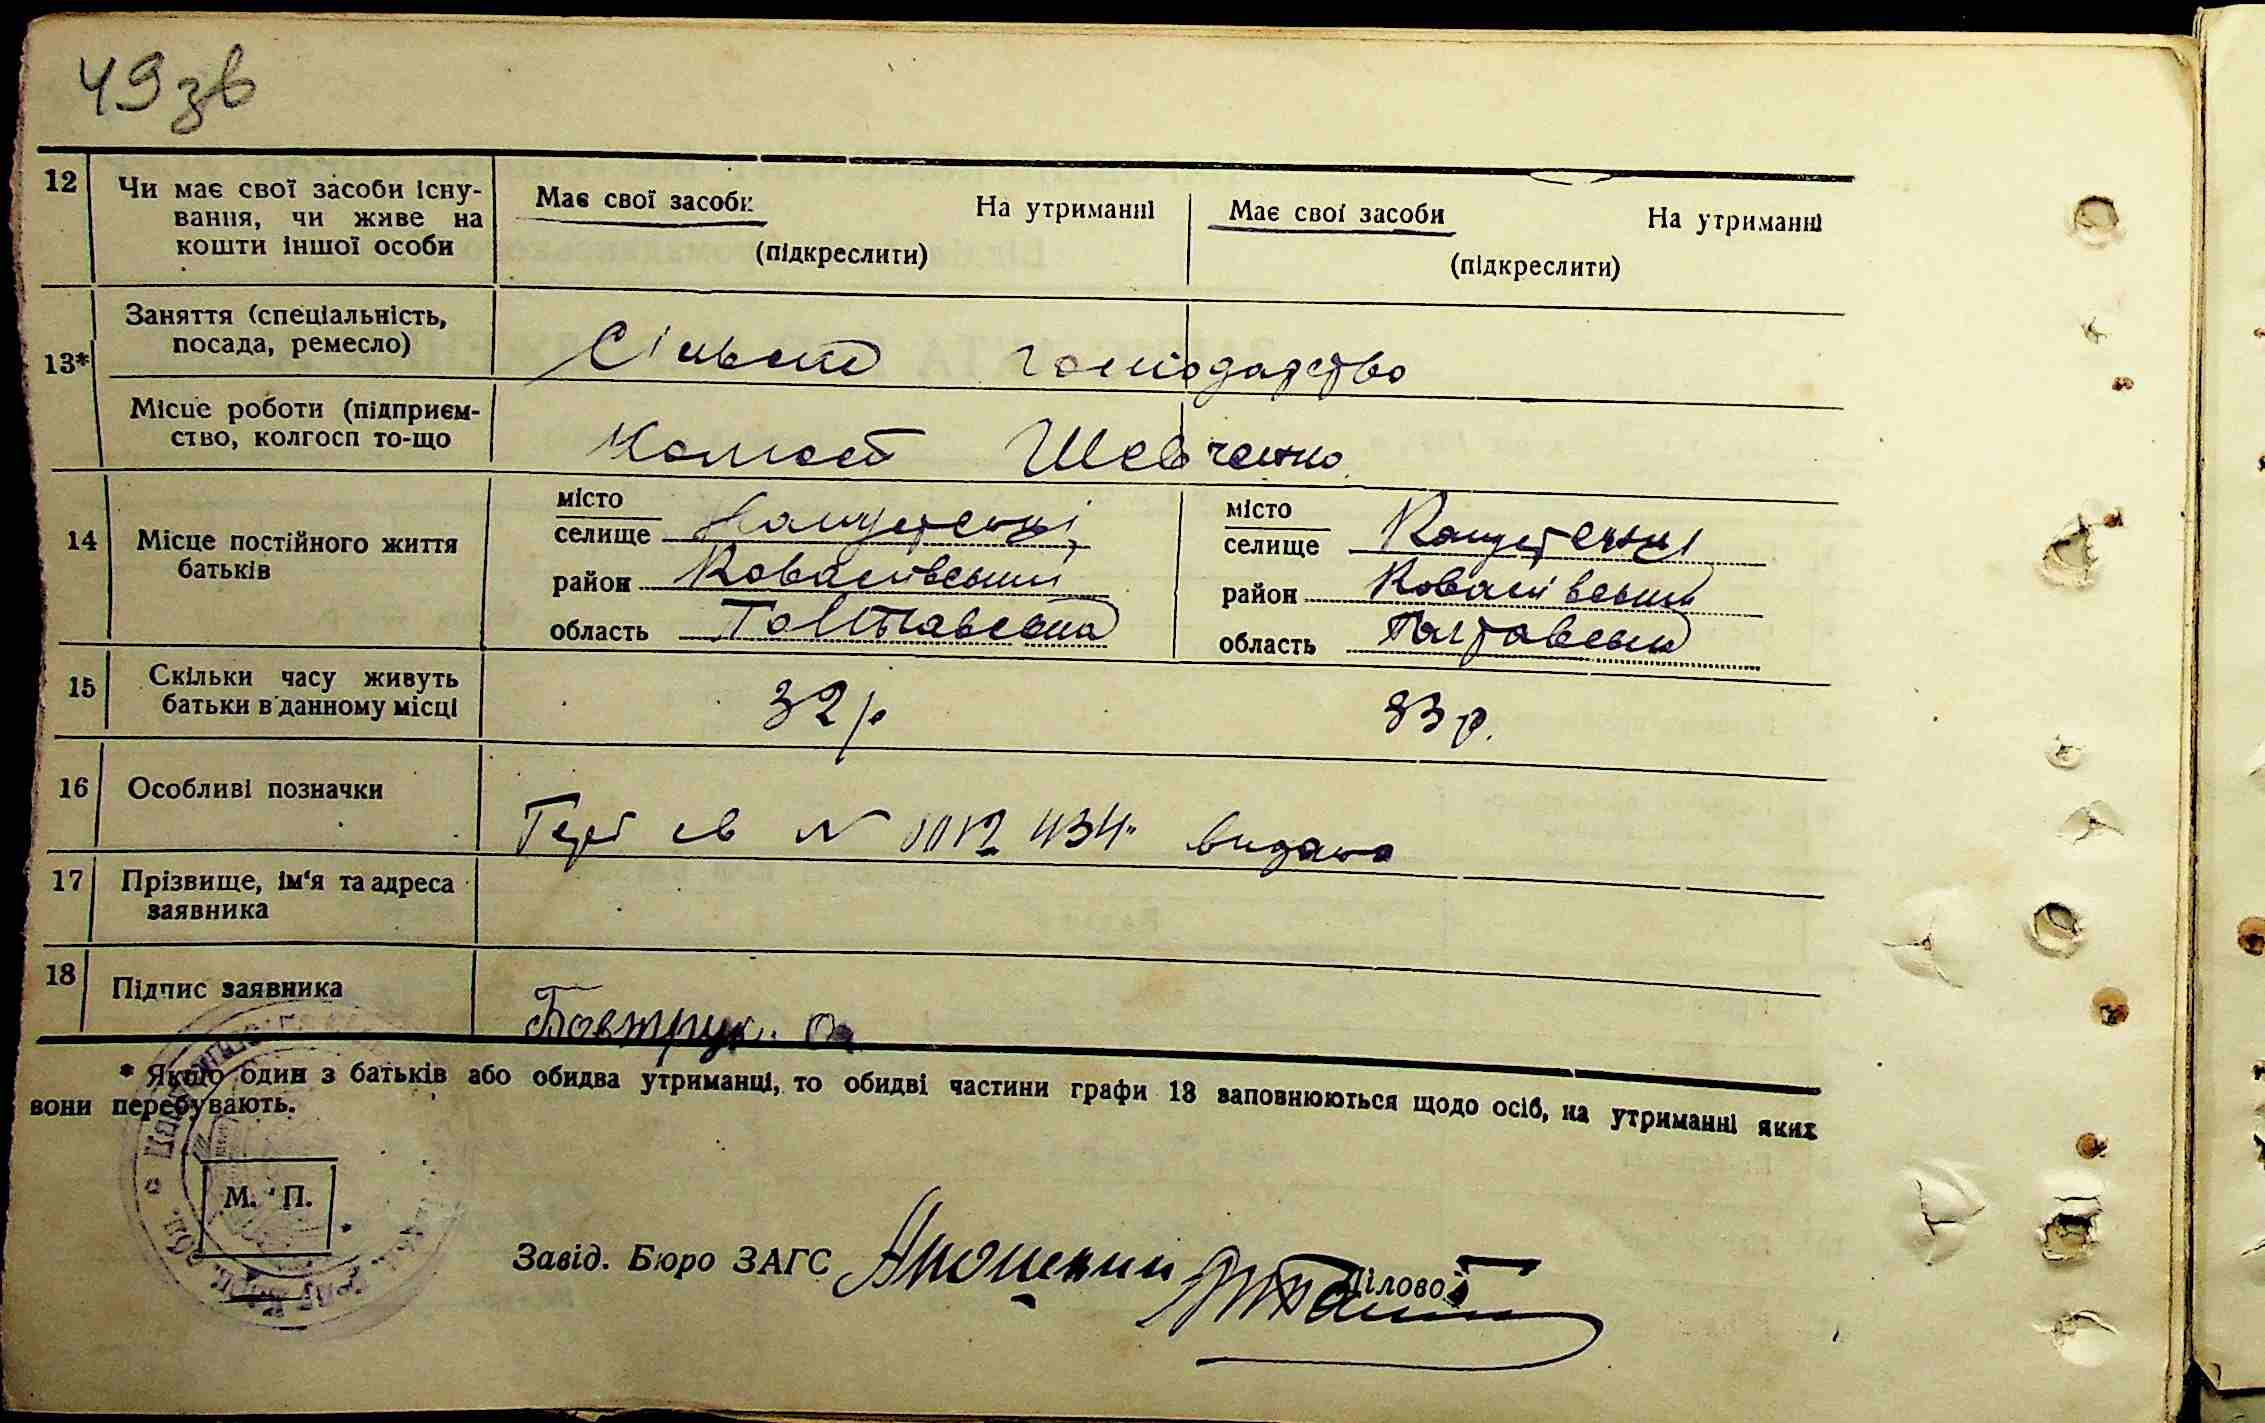 49 зв
12 Чи має свої засоби існу-
вання, чи живе на
кошти іншої особи
Має свої засоби На утриманні
(підкреслити)
Має свої засоби На утриманні
(підкреслити)
13* Заняття (спеціальність,
посада, ремесло)
Сільске господарство
Місце роботи (підприєм-
ство, колгосп то-що
Колгосп Шевченко
14 Місце постійного життя
батьків
місто
селище
район
область Полтавська
місто
селище
район
область Полтавська
15 Скільки часу живуть
батьки в данному місці
32 р
33 р.
16 Особливі позначки
св N 434 видано
17 Прізвище, ім'я та адреса
заявника
18 Підпис заявника
Бовтрук. О
* Якщо один з батьків або обидва утриманці, то обидві частини графи 13 заповнюються щодо осіб, на утриманні яких
вони перебувають.
М. П.
Завід. Бюро ЗАГС
Діловод